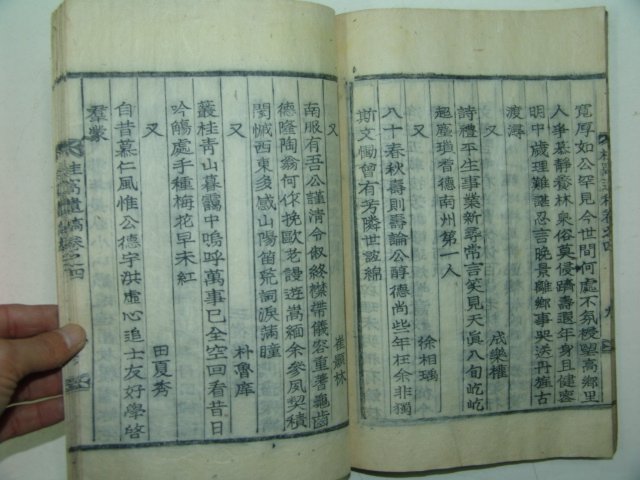 寬厚如公罕見今世間何處不氛望高鄉里
人爭慕靜養林泉俗莫侵躋壽遐年身且健
明中歲理難諶忍言晩景離鄉事哭送丹旌古
渡潯
又 成樂權
詩禮平生事業新尋常言笑見天眞八旬屹屹
超塵瑣耆德南州第一人
又 徐相瑀
八十春秋壽則壽論公醇德尚些年在余非獨
斯文慟曾有芳隣世誼綿
卷之四 九
又 崔顯林
南服有吾公謹清令俶終襟帶儀容重蓍龜齒
德隆陶翁何作挽歐老謾遊嵩緬余參夙契積
閔慽西東多感山陽笛荒詞淚滿瞳
又 朴魯庠
叢桂靑山暮靄中嗚呼萬事已全空回看昔日
吟觴處手種梅花早未紅
又 田夏秀
自昔慕仁風惟公德宇洪虛心追士友好學啓
羣蒙
遺稿卷之四